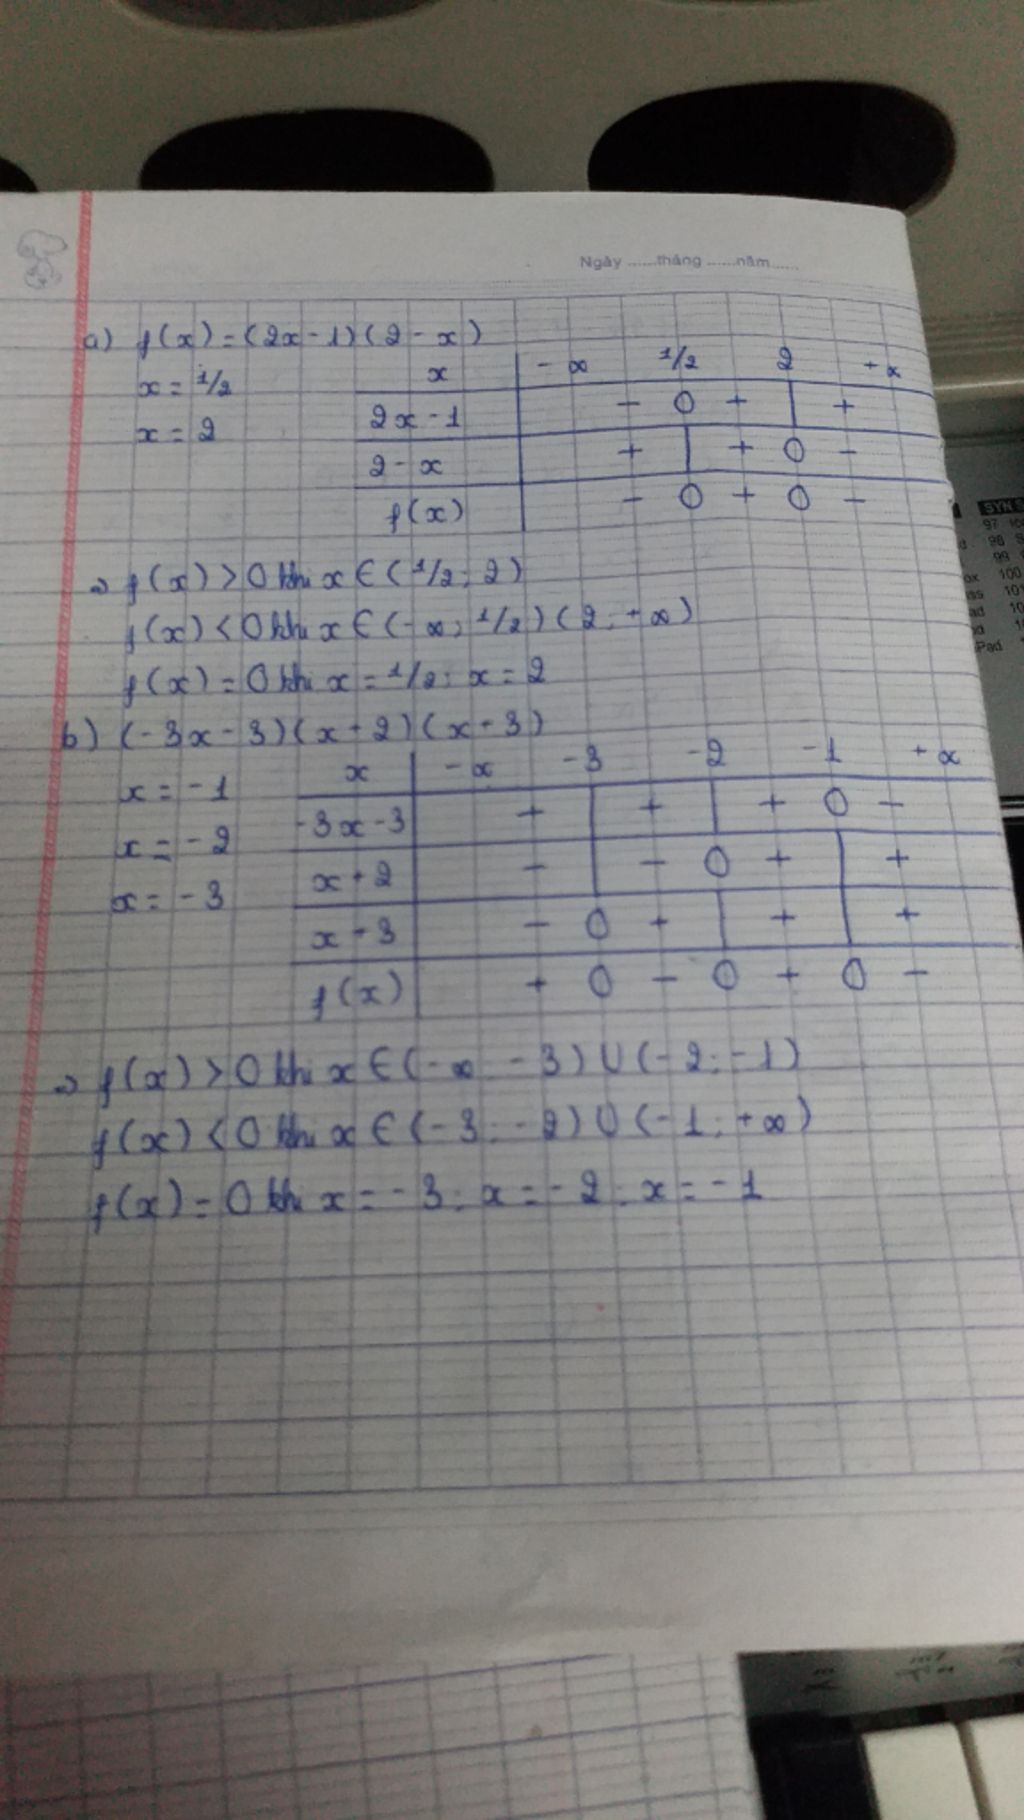 Ngày ......tháng ......năm......
a) f(x) = (2x - 1)(2 - x)
x = 1/2
x = 2
x | -∞ 1/2 2 +∞
2x - 1 | - 0 + | +
2 - x | + | + 0 -
f(x) | - 0 + 0 -
⇒ f(x) > 0 khi x ∈ (1/2; 2)
f(x) < 0 khi x ∈ (-∞; 1/2) (2; +∞)
f(x) = 0 khi x = 1/2; x = 2
b) (-3x - 3)(x + 2)(x + 3)
x = -1
x = -2
x = -3
x | -∞ -3 -2 -1 +∞
-3x - 3 | + | + | + 0 -
x + 2 | - | - 0 + | +
x + 3 | - 0 + | + | +
f(x) | + 0 - 0 + 0 -
⇒ f(x) > 0 khi x ∈ (-∞; -3) U (-2; -1)
f(x) < 0 khi x ∈ (-3; -2) U (-1; +∞)
f(x) = 0 khi x = -3; x = -2; x = -1
97
98
99
100
101
Pad